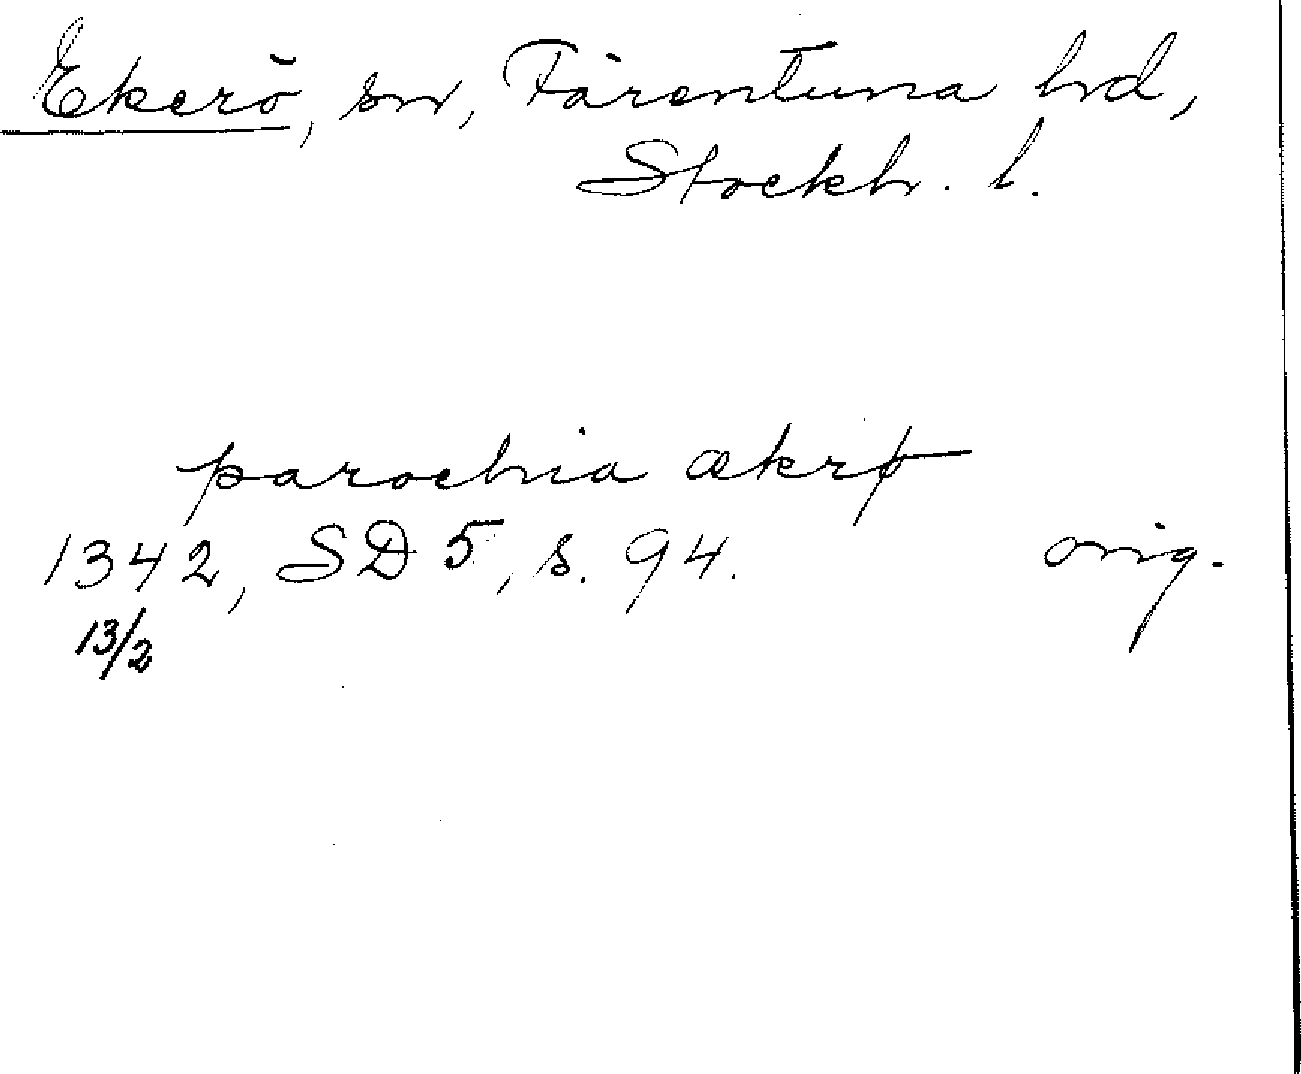 Ekerö, sn, Färentuna hd,
Stockh. l.
parochia ækrø
1342, SD 5, s. 94. orig.
13/2